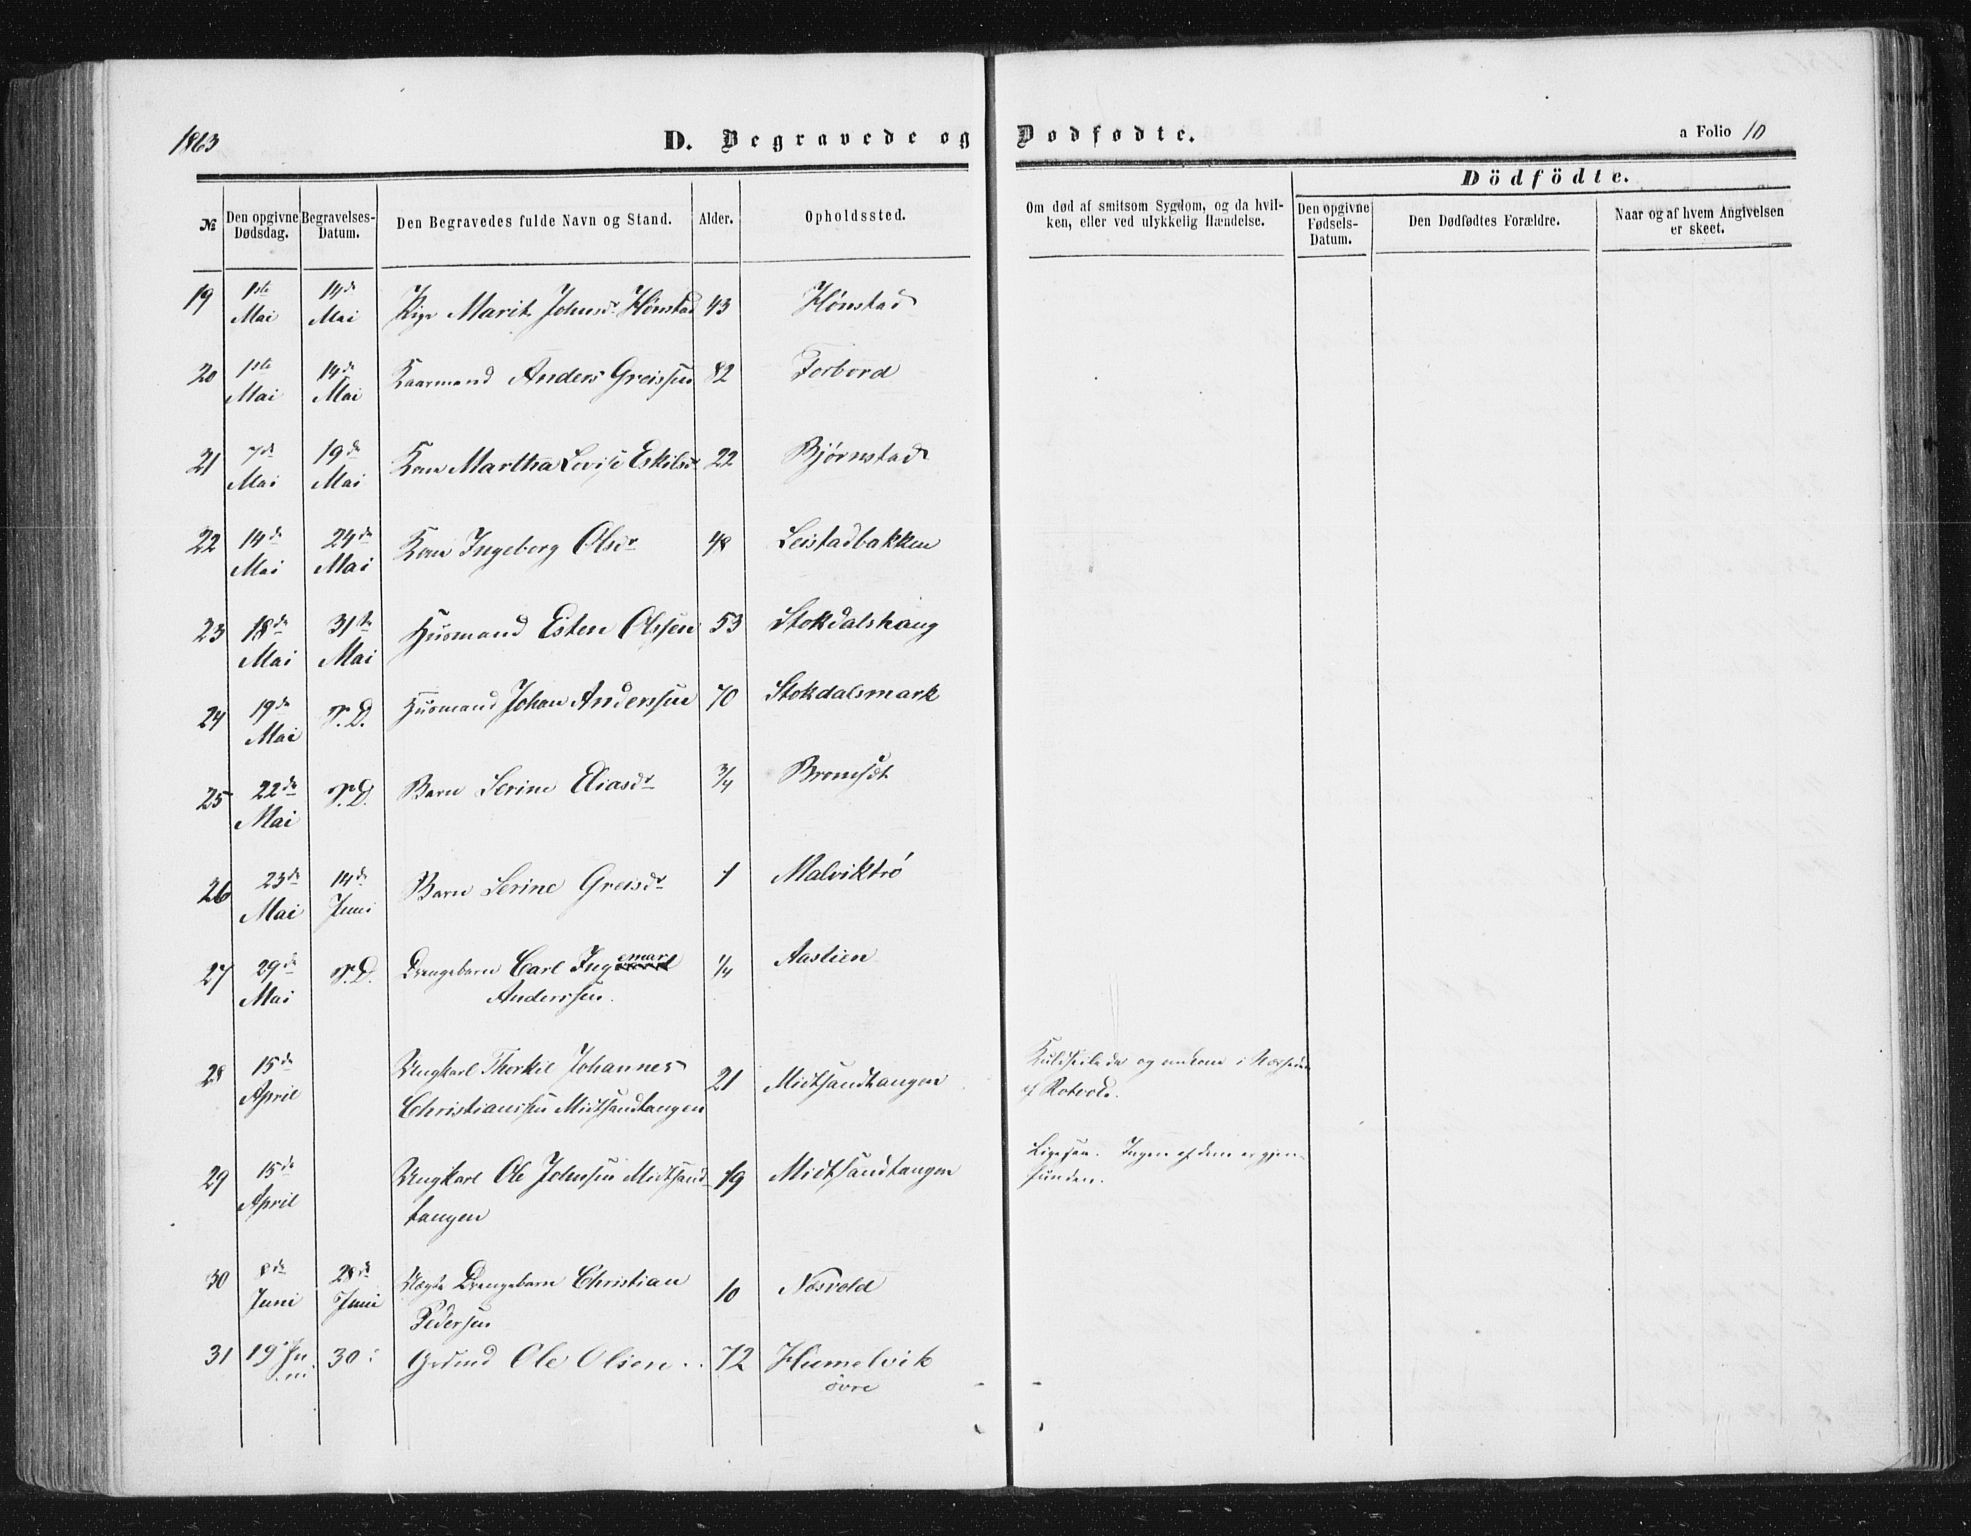 1863
D. Begravede og Dødfødte.
a Folio 10
Dödfödte.
№
Den opgivne Dødsdag.
Begravelses-Datum.
Den Begravedes fulde Navn og Stand.
Alder.
Opholdssted.
Om død af smitsom Sygdom, og da hvilken, eller ved ulykkelig Hændelse.
Den opgivne Fødsels-Datum.
Den Dødfødtes Forældre.
Naar og af hvem Angivelsen er skeet.
19 1ste Mai 14de Mai Pige Marit Johnsdr Hønstad 43 Hønstad
20 1ste Mai 14de Mai Kaarmand Anders Greissen 82 Forbord
21 7de Mai 19de Mai Kone Martha Lovise Eskilsdr 22 Bjørnstad
22 14de Mai 24de Mai Kone Ingeborg Olsdr 48 Leistadbakken
23 18de Mai 31te Mai Husmand Esten Olssen 53 Stokdalshaug
24 19de Mai S.D. Husmand Johan Anderssen 70 Stokdalsmark
25 22de Mai S.D. Barn Serine Eliasdr 3/4
26 23de Mai 14de Juni Barn Serine Greisdr 1 Malviktrø
27 29de Mai S.D. Drengebarn Carl Ingemar
Anderssen. 1/4 Aastien
28 15de April Ungkarl Thorkil Johannes
Christianssen Midtsandtangen 21 Midtsandtangen
Kuldseilede og omkom i Nærheden
af Rotvold.
29 15de April Ungkarl Ole Johnsen Midtsand-
tangen 19 Midtsandtangen
Ligesaa. Ingen af dem er gjen-
funden.
30 8de Juni 28de Juni Lægds Drengebarn Christian
Pedersen 10 Næsvold
31 19 Juni 30: Grdmd Ole Olsen.. 72 Humelvik
øvre